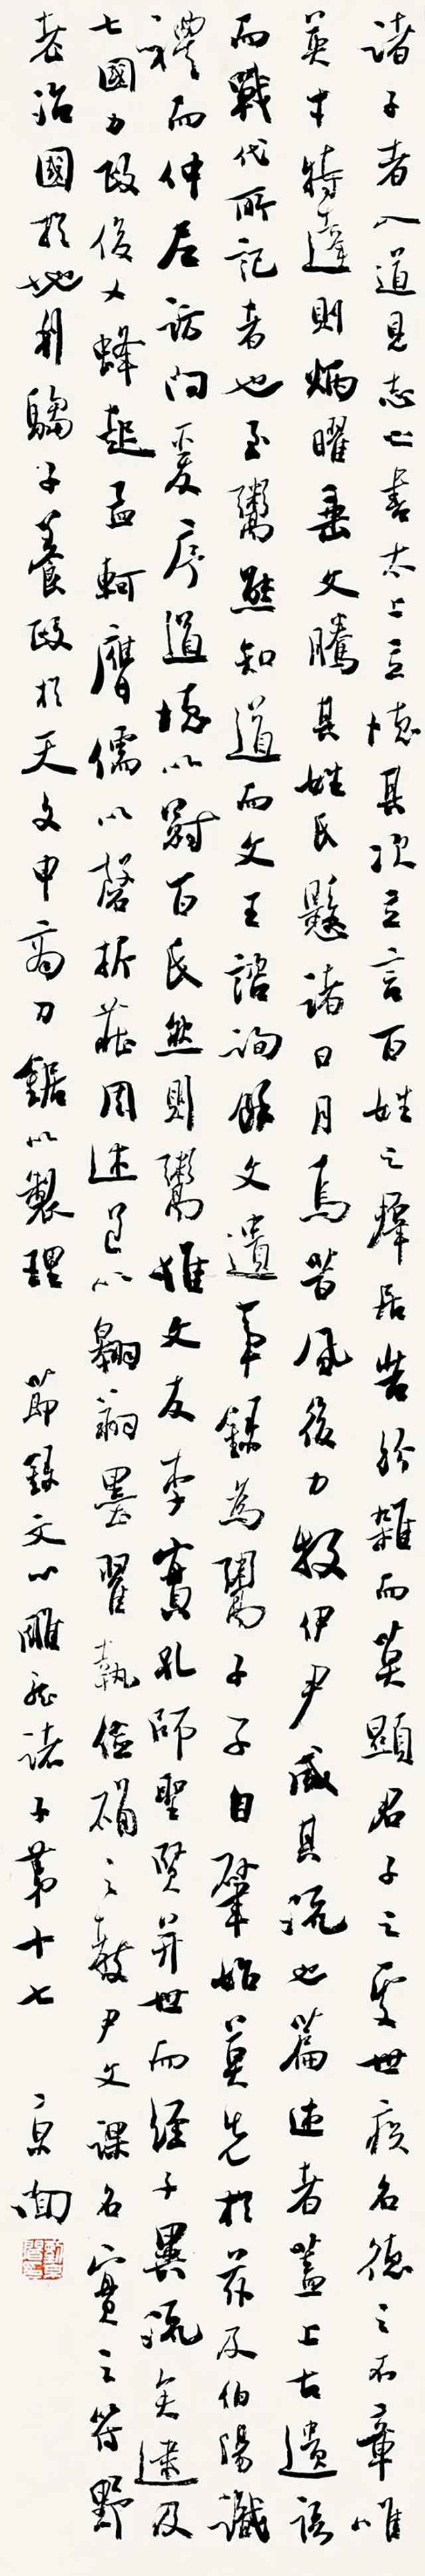 諸子者入道見志之書太上立德其次立言百姓之群居苦紛雜而莫顯君子之處世疾名德之不章唯
英才特達則炳曜垂文騰其姓氏懸諸日月焉昔風後力牧伊尹咸其流也篇述者蓋上古遺語
而戰代所記者也至鬻熊知道而文王諮詢餘文遺事錄為鬻子子自肇始莫先於茲及伯陽識
禮而仲尼訪問爰序道德以冠百氏然則鬻惟文友李實孔師聖賢並世而經子異流矣逮及
七國力政俊乂蜂起孟軻膺儒以磬折莊周述道以翱翔墨翟執儉確之教尹文課名實之符野
老治國於地利騶子養政於天文申商刀鋸以製理 節錄文心雕龍諸子第十七